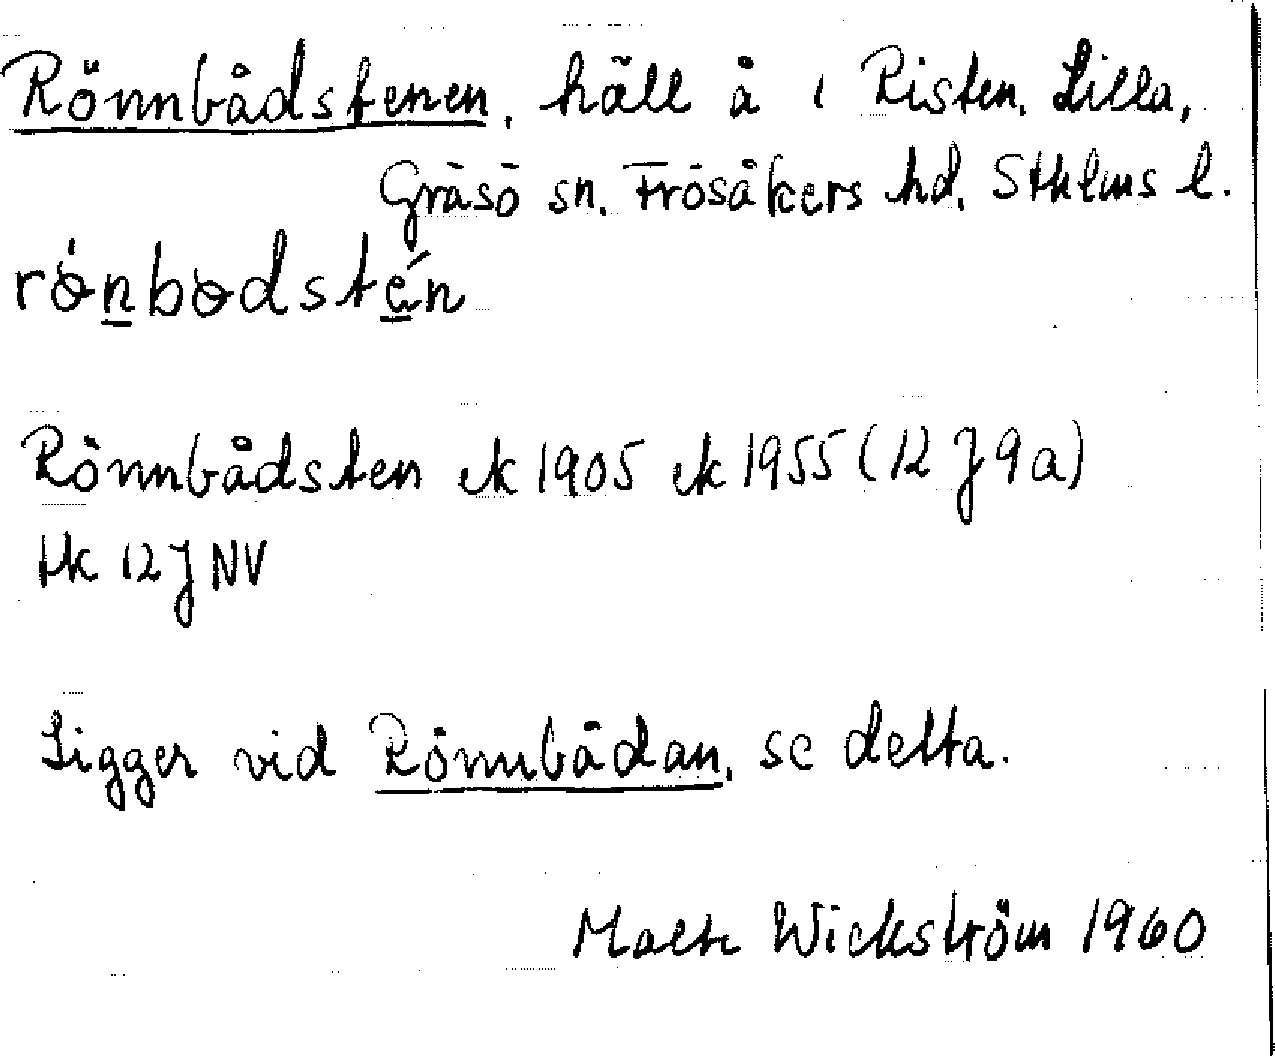 Rönnbådstenen, häll å i Risten, Lilla,
Gräsö sn. Frösåkers hd. Sthlms l.
rö́nbodstén
Rönnbådsten ek 1905 ek 1955 (12 J 9 a)
tk 12 J NV
Ligger vid Rönnbådan, se detta.
Malte Wickström 1960